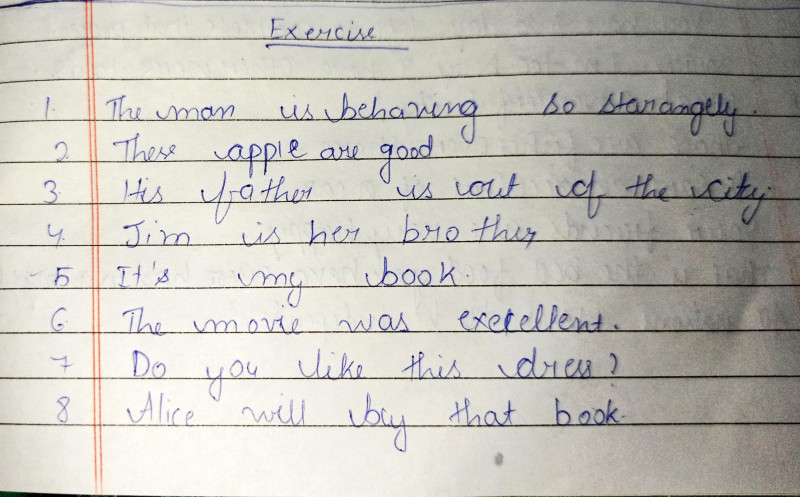 Exercise
1. The man is behaving so starangely.
2. These apple are good
3. His father is out of the city.
4. Jim is her brother
5 It's my book
6 The movie was exerellent.
7 Do you like this dress?
8 Alice will bay that book.